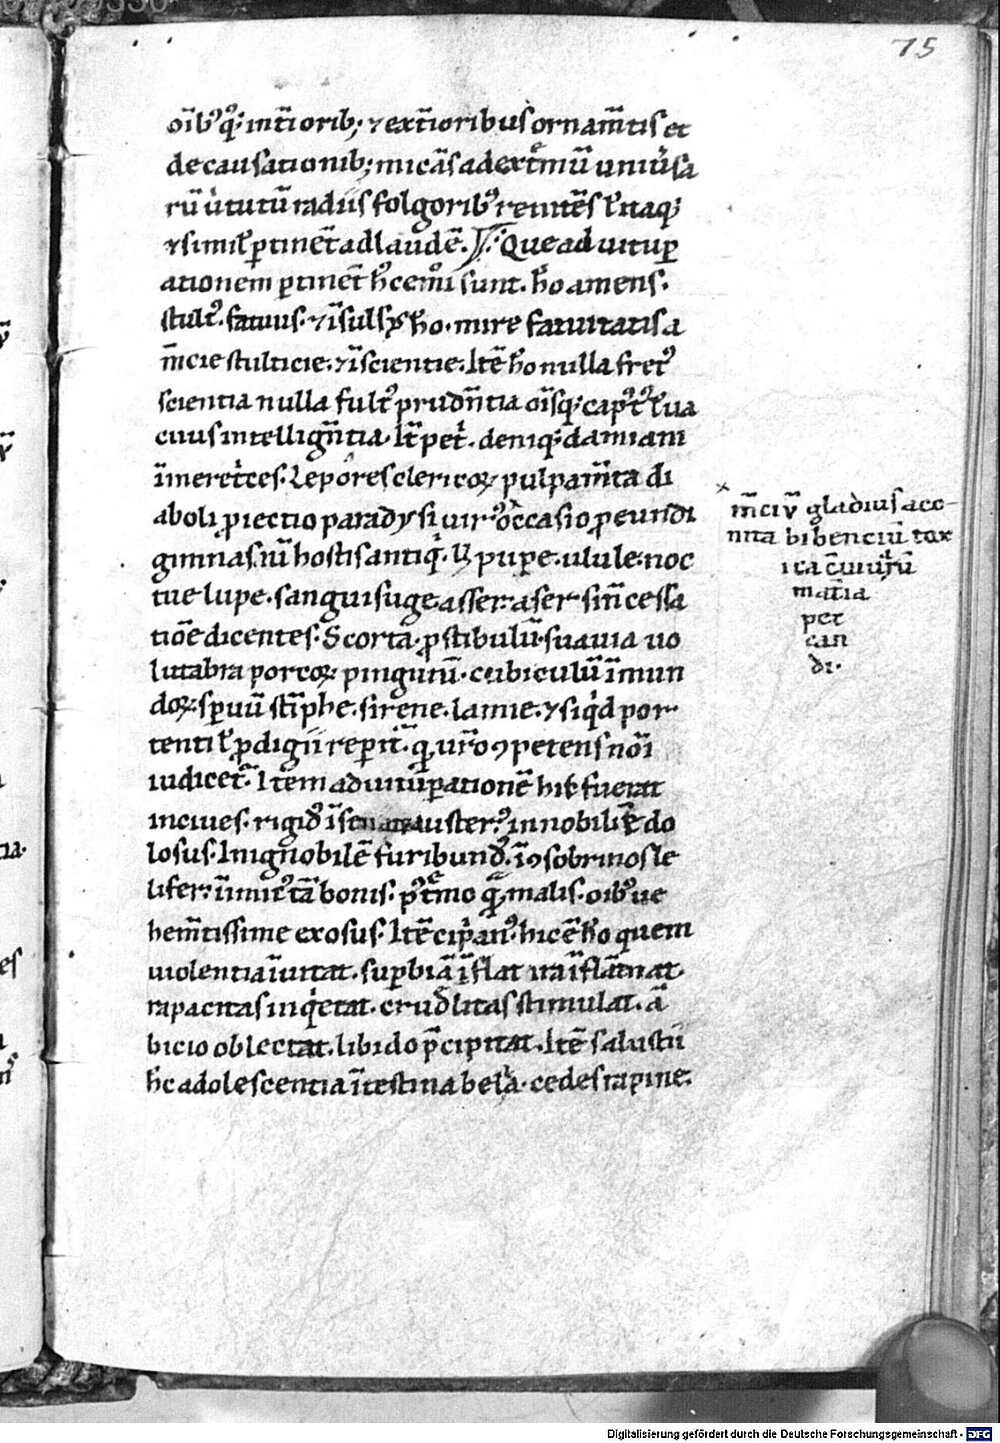 75
oīb⁹ q̄; int̄iorib; ⁊ ext̄ioribus ornam̄tis et
de causationib; micās ad ext̄mū uniūsa
rū ututū radiis folgorib⁹ renitēs ł itaq;
⁊ simil' ptinēt ad laudē. Que ad uitup
ationem ptinēt h̄ cem̄i sunt. h̄o amens.
stult⁹. fatuus. ⁊ īsulsus h̄o. mire fatuitatis a
m̄cie stulticie. ⁊ īscientie. Itē h̄o nulla fret⁹
scientia nulla fult⁹ prudn̄tia oīsq; capt⁹ ł ua
cuus intellign̄tia. It̄ pet. deniq; damiani
ī meret'ces. Lepores clericoꝝ pulpam̄ta di
aboli piectio paradysi uir⁹ occasio peundi
gimnasiū hostis antiq'. upupe. ulule. noc
tue lupe. sanguisuge asser aser sin̄ cessa
tiōe dicentes. Scorta. pstibulū. suauia uo
lutabra porcoꝝ pinguiū. cubiculū īmun
doꝝ spuū stīphe. sirene. lamie. ⁊ siq'd por
tenti ł pdigii reperit. q̄ uro ꝯpetens nōi
iudicet. Item ad uitupationē hic fuerat
in ciues. rigid⁹ ī senatū auster⁹. in nobilē do
losus. In ignobilē furibund⁹. ī ꝯsobrinos le
lifer. inimic⁹ tā bonis. pt̄mo q̄ malis. oib⁹ ue
hem̄tissime exosus. Itē cipan⁹. hic ē h̄o quem
uiolentia īuitat. supbiā īflat ira īflāmat
rapacitas inq'etat. crudlitas stimulat. ā
bicio oblectat. libido p̄cipitat. Itē salustii
h̄c adolescentia ītestina bella. cedes rapine.
m̄ciū gladius aco-
nita bibenciū tox
ica cūuiuū
mat̄ia
pec
can
di.
Digitalisierung gefördert durch die Deutsche Forschungsgemeinschaft - DFG